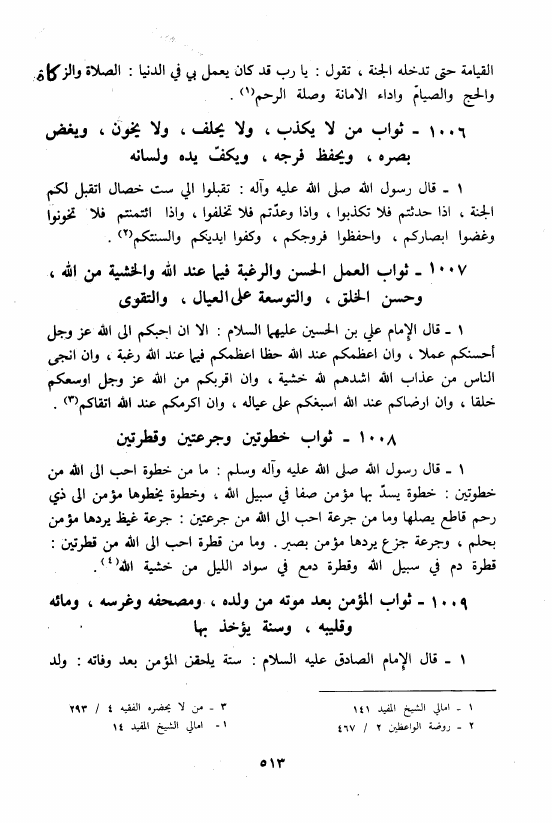 القيامة حتى تدخله الجنة ، تقول : يا رب قد كان يعمل بي في الدنيا : الصلاة والزكاة
والحج والصيام واداء الامانة وصلة الرحم(١) .
١٠٠٦ - ثواب من لا يكذب ، ولا يحلف ، ولا يخون ، ويغض
بصره ، ويحفظ فرجه ، ويكفّ يده ولسانه
١ - قال رسول الله صلى الله عليه وآله : تقبلوا الي ست خصال اتقبل لكم
الجنة ، اذا حدثتم فلا تكذبوا ، واذا وعدّتم فلا تخلفوا ، واذا ائتمنتم فلا تخونوا
وغضوا ابصاركم ، واحفظوا فروجكم ، وكفوا ايديكم والسنتكم(٢) .
١٠٠٧ - ثواب العمل الحسن والرغبة فيما عند الله والخشية من الله ،
وحسن الخلق ، والتوسعة على العيال ، والتقوى
١ - قال الإمام علي بن الحسين عليهما السلام : الا ان احبكم الى الله عز وجل
أحسنكم عملا ، وان اعظمكم عند الله حظا اعظمكم فيما عند الله رغبة ، وان انجى
الناس من عذاب الله اشدهم لله خشية ، وان اقربكم من الله عز وجل اوسعكم
خلقا ، وان ارضاكم عند الله اسبغكم على عياله ، وان اكرمكم عند الله اتقاكم(٣) .
١٠٠٨ - ثواب خطوتين وجرعتين وقطرتين
١ - قال رسول الله صلى الله عليه وآله وسلم : ما من خطوة احب الى الله من
خطوتين : خطوة يسدّ بها مؤمن صفا في سبيل الله ، وخطوة يخطوها مؤمن الى ذي
رحم قاطع يصلها وما من جرعة احب الى الله من جرعتين : جرعة غيظ يردها مؤمن
بحلم ، وجرعة جزع يردها مؤمن بصبر . وما من قطرة احب الى الله من قطرتين :
قطرة دم في سبيل الله وقطرة دمع في سواد الليل من خشية الله(٤) .
١٠٠٩ - ثواب المؤمن بعد موته من ولده ، ومصحفه وغرسه ، ومائه
وقليبه ، وسنة يؤخذ بها
١ - قال الإمام الصادق عليه السلام : ستة يلحقن المؤمن بعد وفاته : ولد
١ - امالي الشيخ المفيد ١٤١
٢ - روضة الواعظين ٢ / ٤٦٧
٣ - من لا يحضره الفقيه ٤ / ٢٩٣
١- امالي الشيخ المفيد ١٤
٥١٣